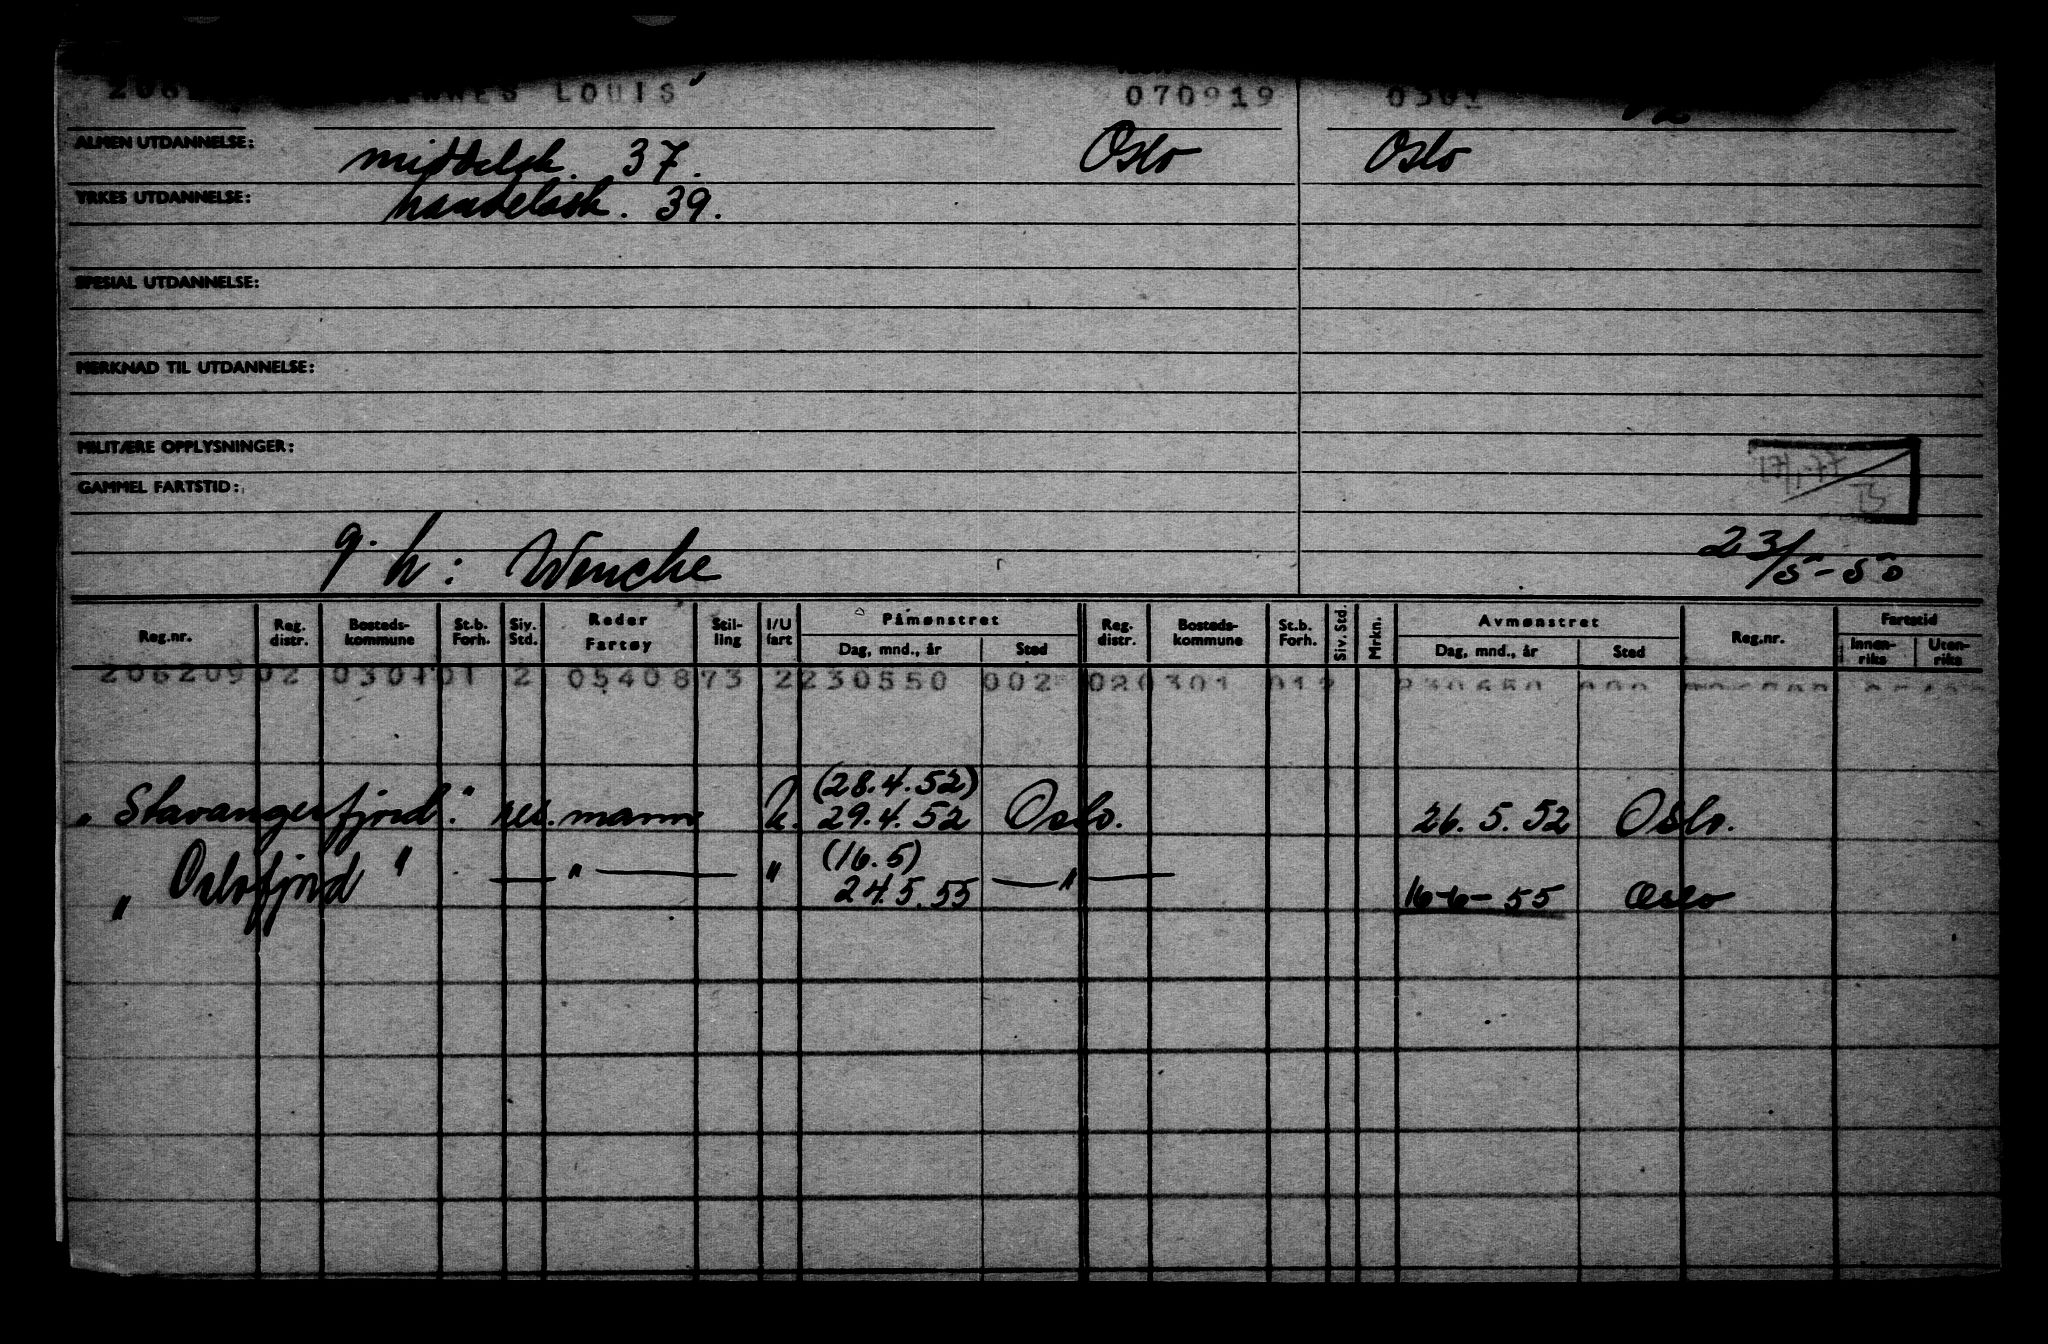 LOUIS 070919
ALMEN UTDANNELSE: middelsk. 37. Oslo Oslo
YRKES UTDANNELSE: handelssk. 39.
SPESIAL UTDANNELSE:
MERKNAD TIL UTDANNELSE:
MILITÆRE OPPLYSNINGER:
GAMMEL FARTSTID:
g. h: Wenche 23/5-50
Reg.nr. Reg. distr. Bosteds-kommune St.b. Forh. Siv. Std. Reder Fartøy Stil-ling I/U fart Påmønstret Dag, mnd., år Sted Reg. distr. Bosteds-kommune St.b. Forh. Siv. Std. Mrkn. Avmønstret Dag, mnd., år Sted Reg.nr. Fartstid Innen-riks Uten-riks
206209 02 0301 01 2 0540873 2 230550 002 02 0301 01 2
(28.4.52)
"Stavangerfjord". res. mann U. 29.4.52 Oslo. 26.5.52 Oslo.
(16.5)
"Oslofjord" — " — " 24.5.55 — " — 16-6-55 Oslo